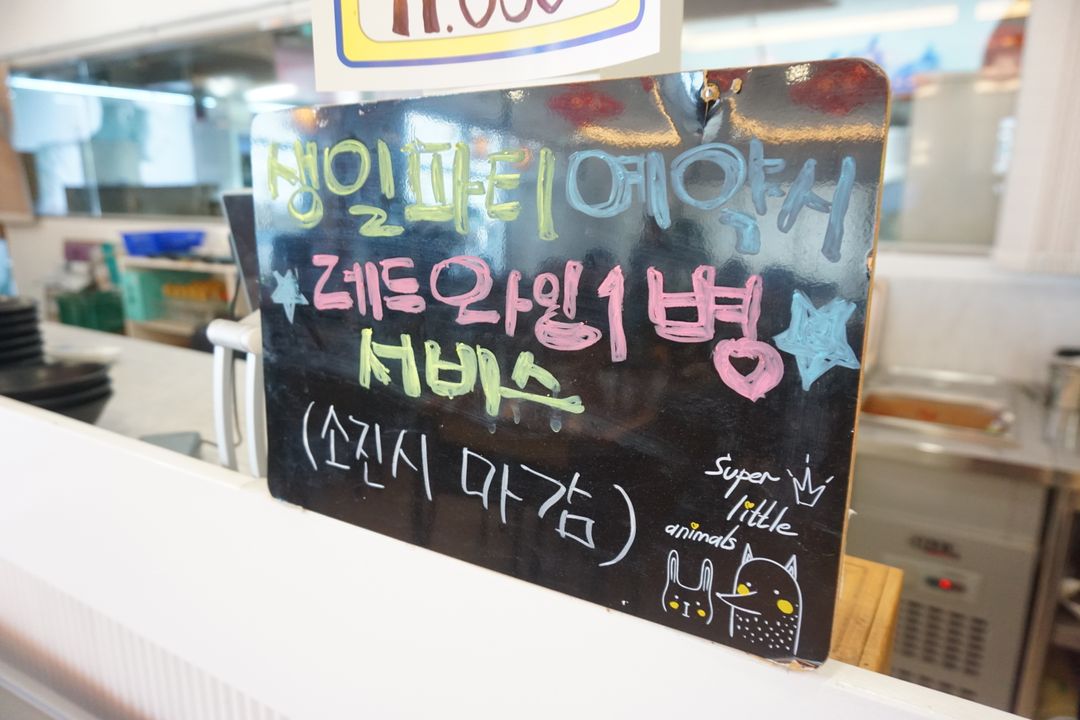 생일파티 예약시
레드와인 1병
서비스
(소진시 마감)
Super
little
animals